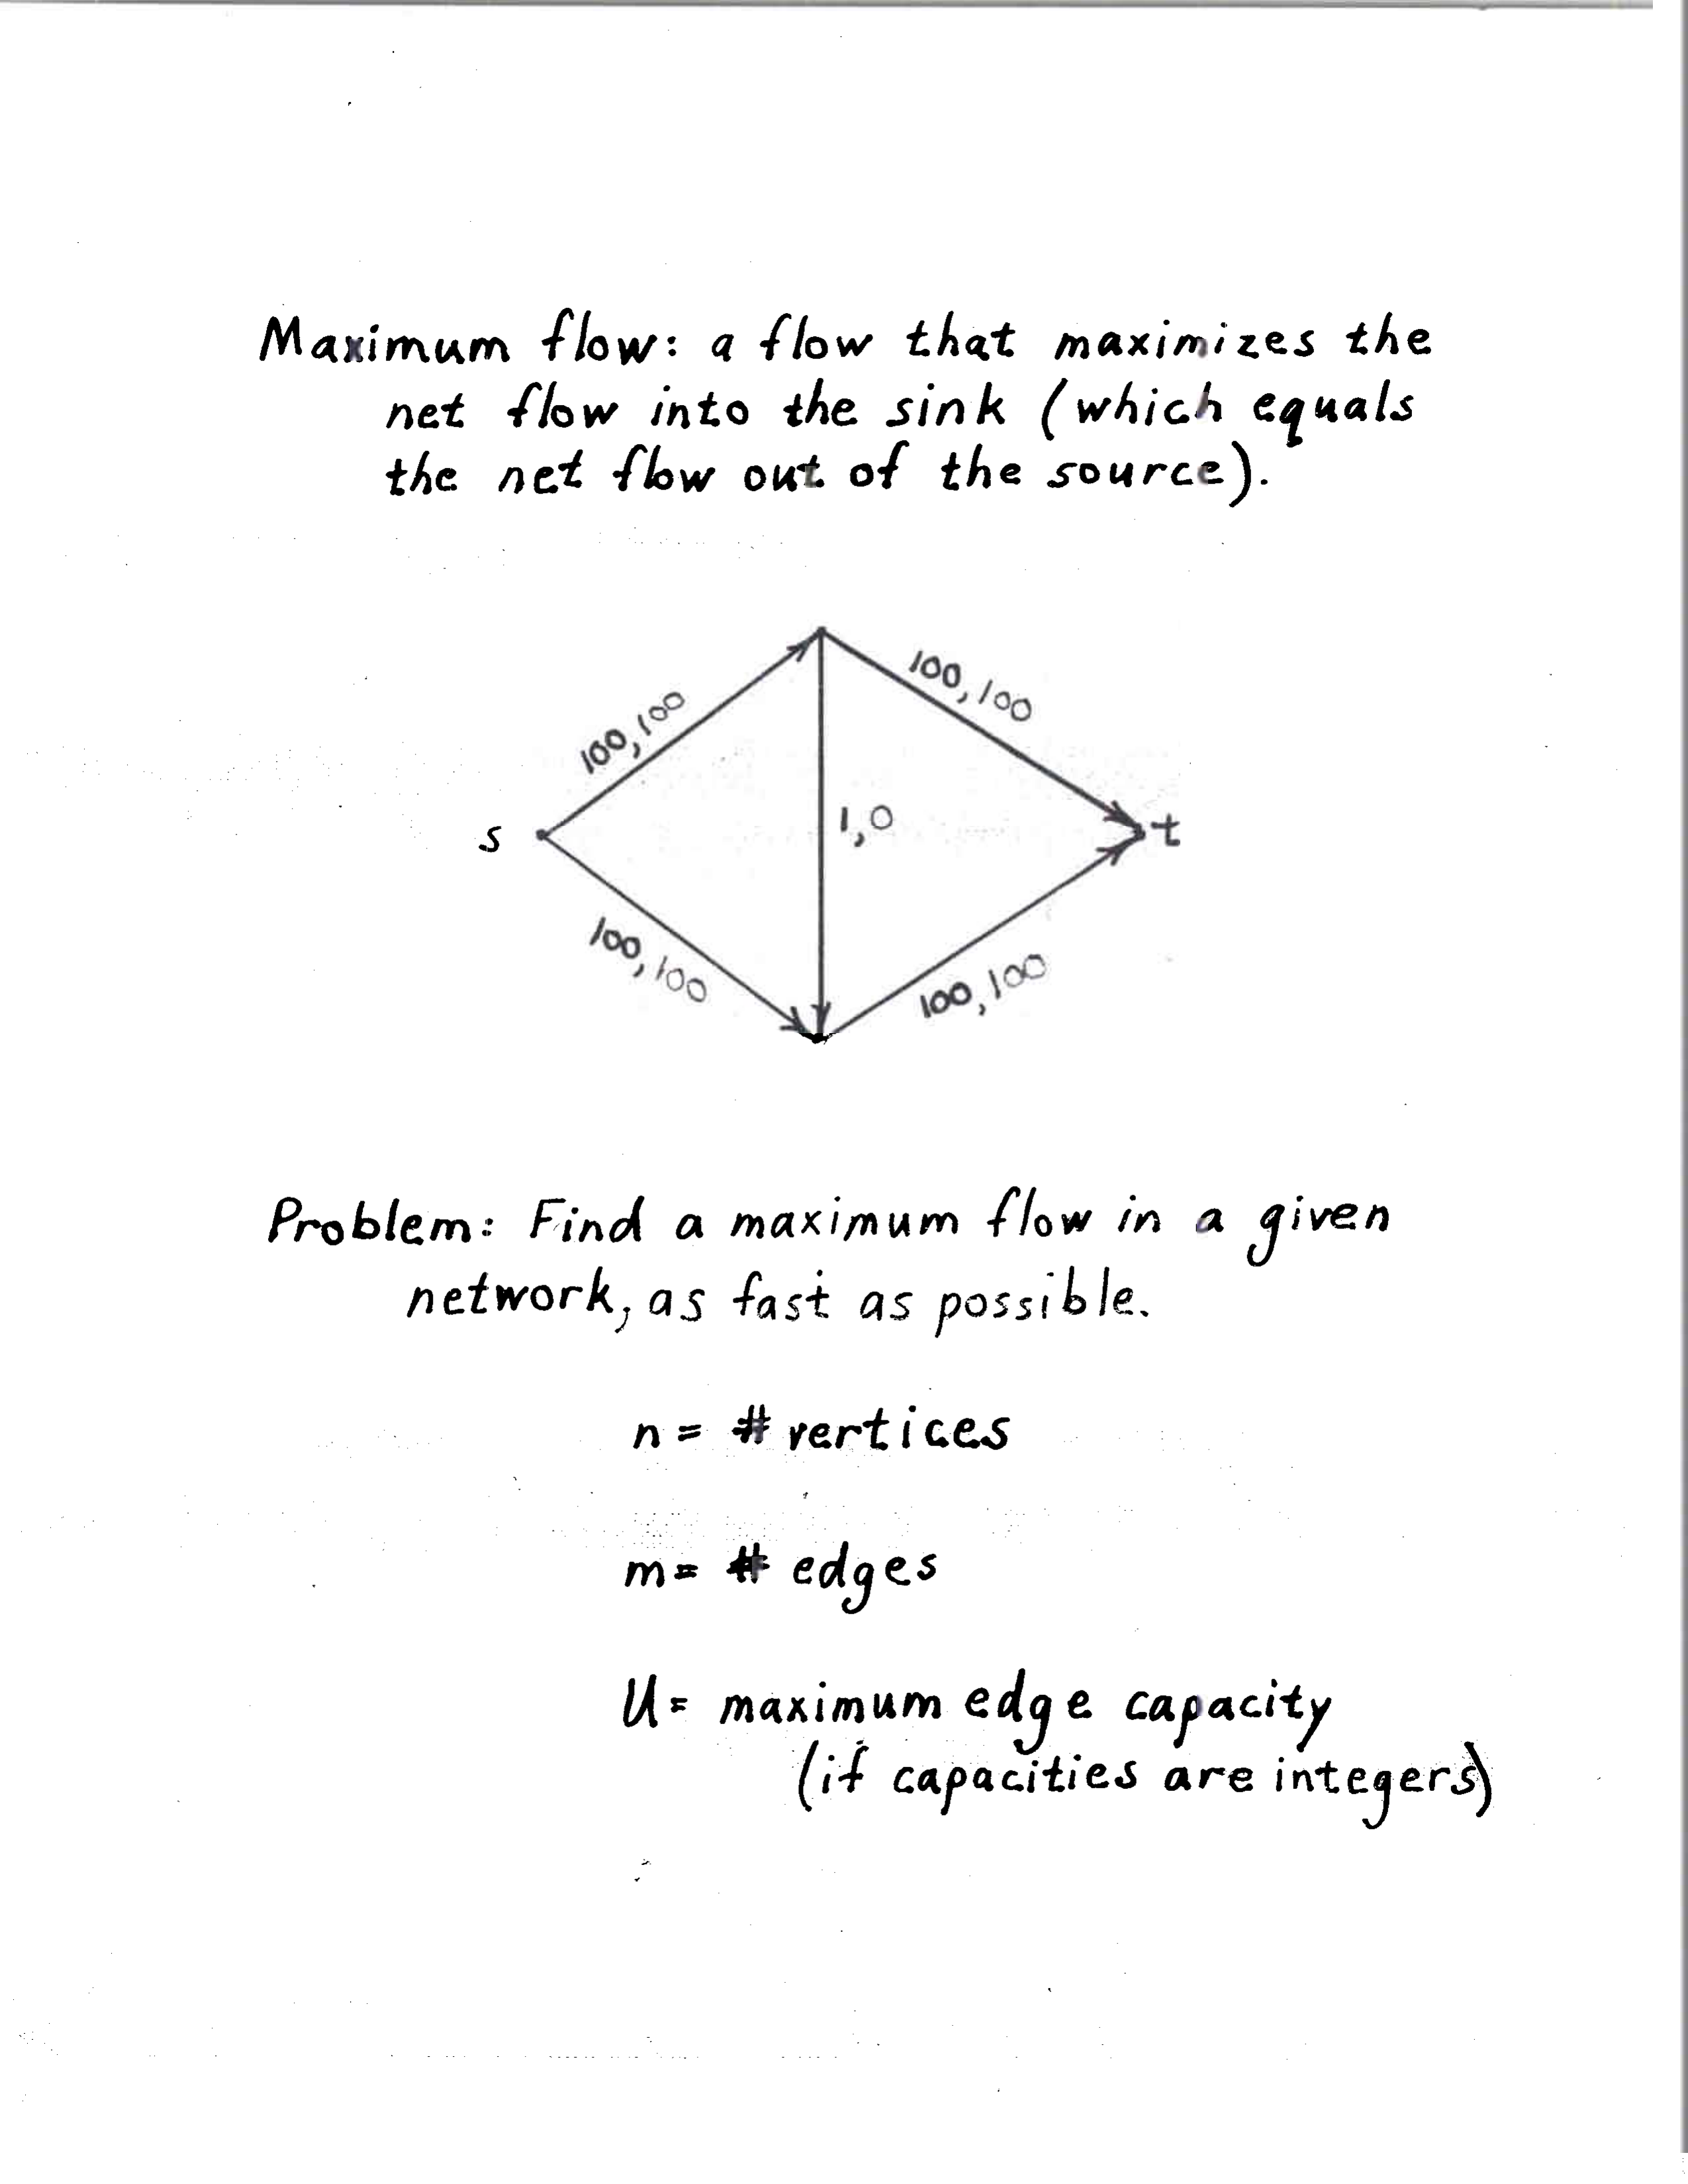 Maximum flow: a flow that maximizes the
net flow into the sink (which equals
the net flow out of the source).
100,100
100,100
s
1,0
t
100,100
100,100
Problem: Find a maximum flow in a given
network, as fast as possible.
n = # vertices
m = # edges
U = maximum edge capacity
(if capacities are integers)